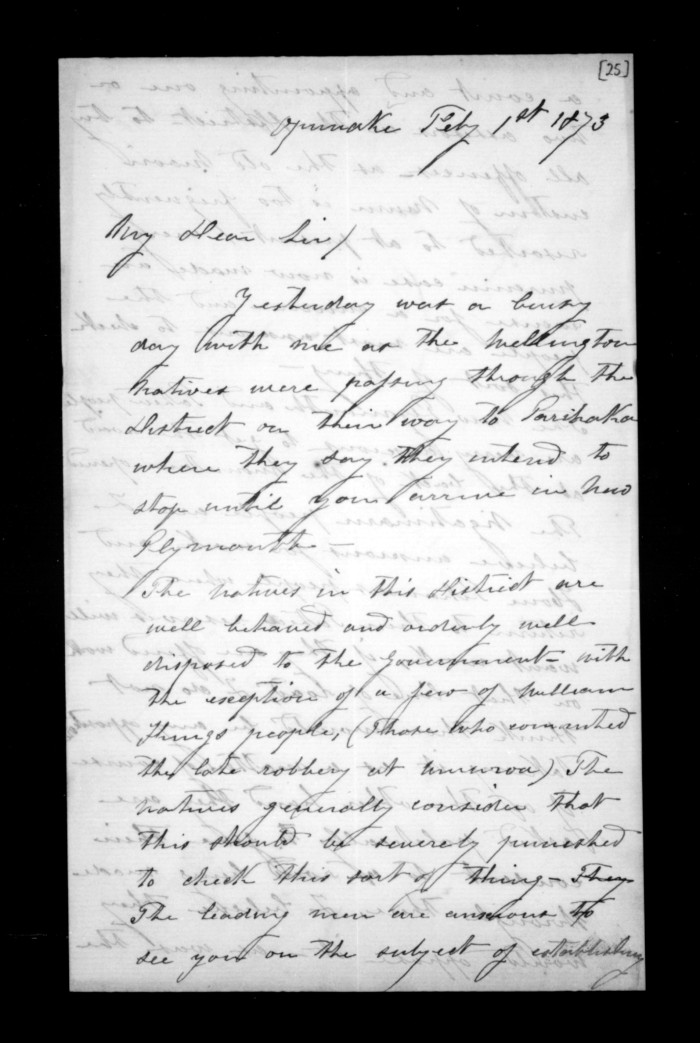 [25]
Opunake Feby 1st 1873
My Dear Sir/
Yesterday was a busy
day with me as the Wellington
Natives were passing through the
district on their way to Parihaka
where they say they intend to
stop until you arrive in New
Plymouth –
The Natives in this district are
well behaved and orderly well
disposed to the Government – with
the exception of a few of William
Kings people, (Those who committed
the late robbery at Umuroa) The
natives generally consider that
this should be severely punished
to check this sort of thing – They
The leading men are anxious to
see you on the subject of establishing